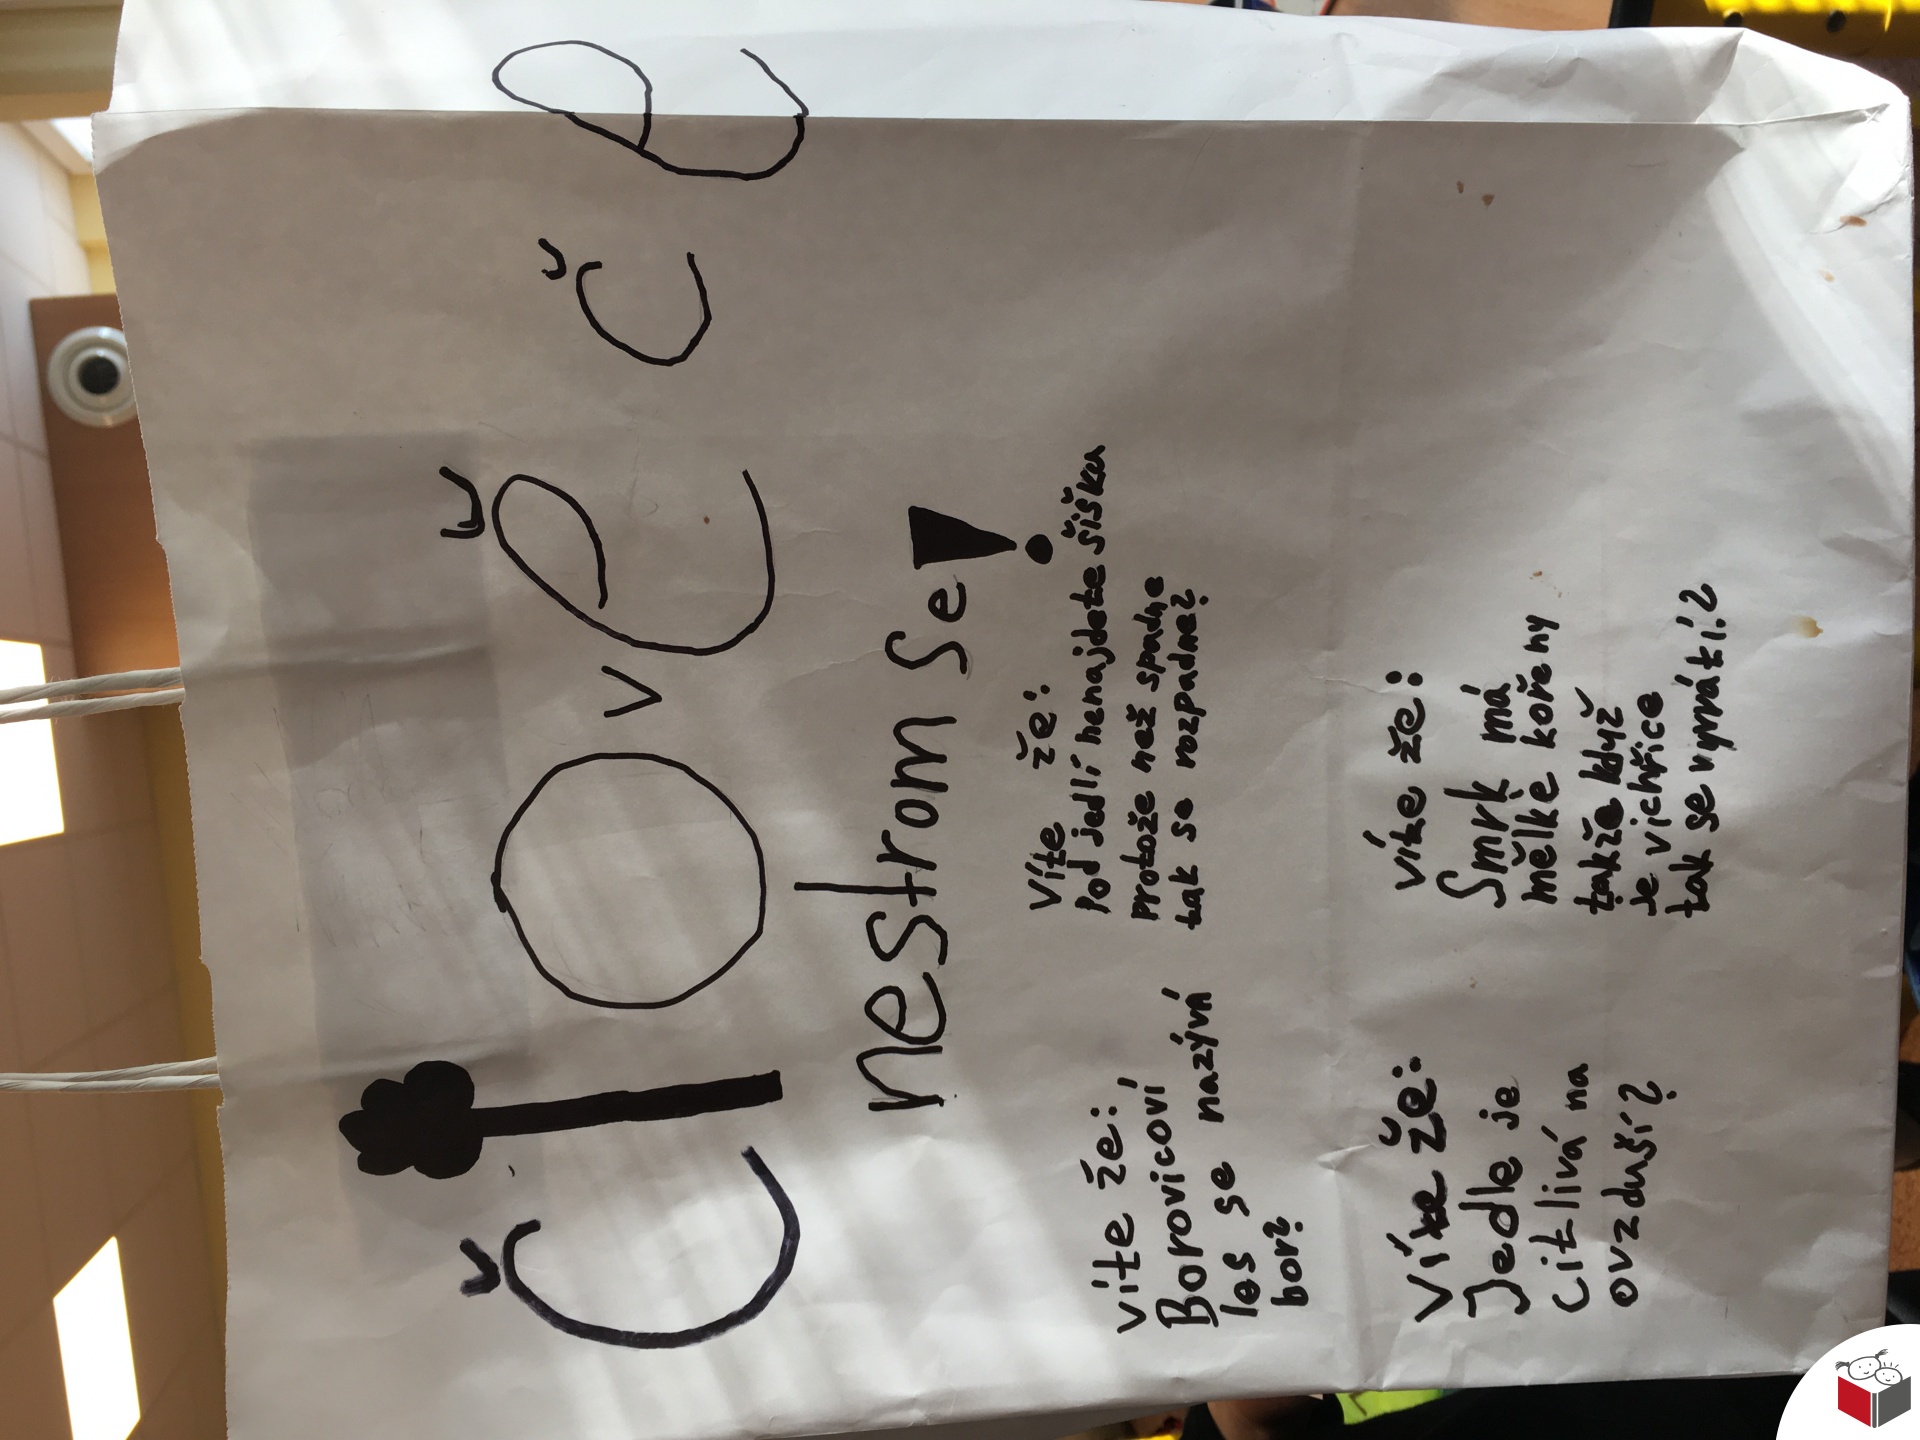 Člověčě
nestrom se!
Víte že:
Borovicoví
les se nazývá
bor?
Víte že:
Pod jedlí nenajdete šišku
Protože než spadne
tak se rozpadne?
Víte že:
Jedle je
citlivá na
ovzduší?
víte že:
Smrk má
mělké kořeny
takže když
je vichřice
tak se vyvrátí?